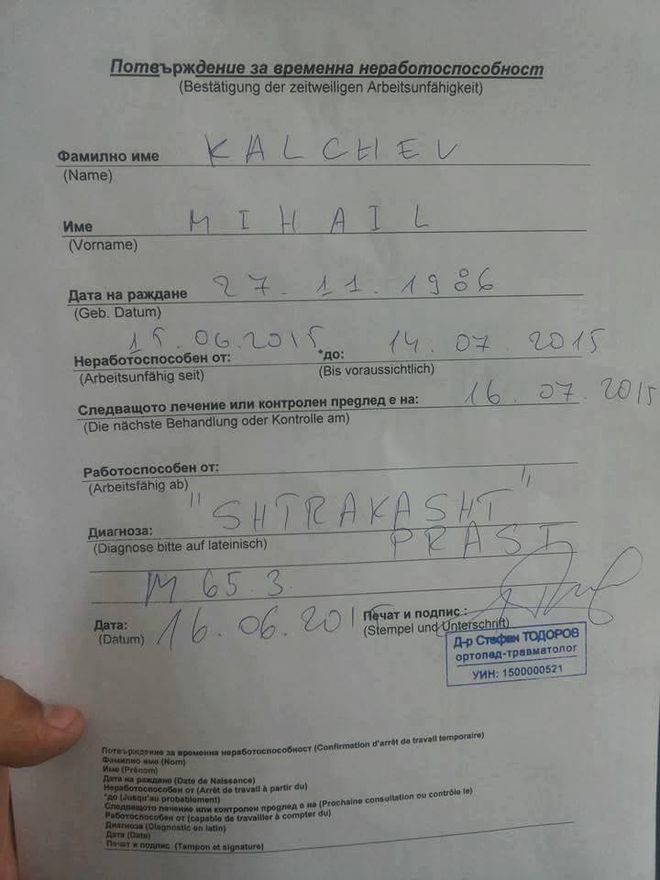 Потвърждение за временна неработоспособност
(Bestätigung der zeitweiligen Arbeitsunfähigkeit)
Фамилно име KALCHEV
(Name)
Име MIHAIL
(Vorname)
Дата на раждане 27.11.1986
(Geb. Datum)
Неработоспособен от: 15.06.2015 *до: 14.07.2015
(Arbeitsunfähig seit) (Bis voraussichtlich)
Следващото лечение или контролен предлед е на: 16.07.2015
(Die nächste Behandlung oder Kontrolle am)
Работоспособен от:
(Arbeitsfähig ab)
Диагноза: "SHTRAKASHT"
(Diagnose bitte auf lateinisch) PRAST
M 65.3.
Дата: 16.06.2015 Печат и подпис :
(Datum) (Stempel und Unterschrift)
Д-р Стефан ТОДОРОВ
ортопед-травматолог
УИН: 1500000521
Потвърждение за временна неработоспособност (Confirmation d'arrêt de travail temporaire)
Фамилно име (Nom)
Име (Prénom)
Дата на раждане (Date de Naissance)
Неработоспособен от (Arrêt de travail à partir du)
*до (Jusqu'au probablement)
Следващото лечение или контролен предлед е на (Prochaine consultation ou contrôle le)
Работоспособен от (capable de travailler à compter du)
Диагноза (Diagnostic en latin)
Дата (Date)
Печат и подпис (Tampon et signature)